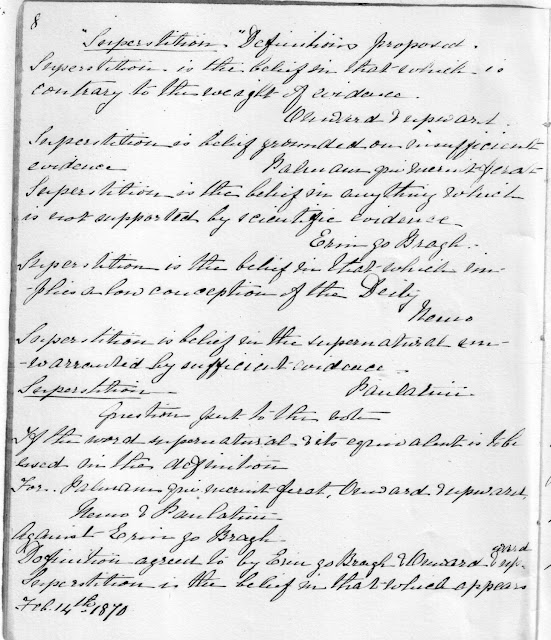 8
"Superstition" Definitions proposed.
Superstition is the belief in that which is
contrary to the weight of evidence.
Onward & upward.
Superstition is belief grounded on insufficient
evidence Palmam qui meruit ferat
Superstition is the belief in anything which
is not supported by scientific evidence
Erin go Bragh.
Superstition is the belief in that which im-
-plies a low conception of the Deity
Nemo
Superstition is belief in the supernatural un-
-warranted by sufficient evidence.
Superstition Paulatim
Question put to the vote
If the word supernatural & its equivalent is to be
used in the definition
For. Palmam qui meruit ferat, Onward & upward,
Nemo & Paulatim
Against Erin go Bragh
Definition agreed to by Erin go Bragh & Onward & upward
Superstition is the belief in that which appears
Feb. 14th 1870